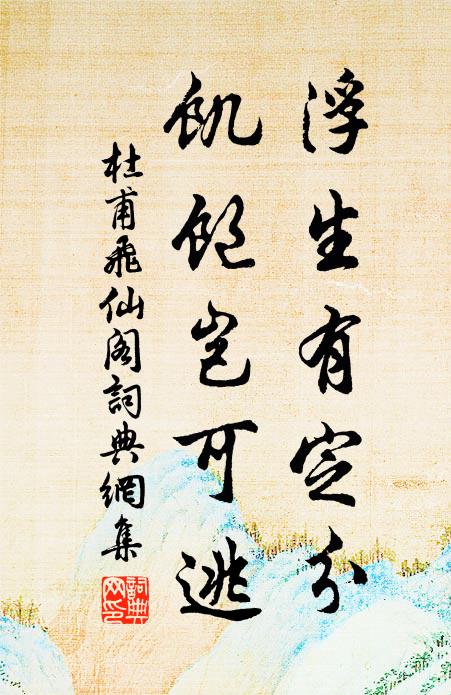 浮生有定分
飢飽豈可逃
杜甫飛仙閣詞典網集
詞典網印